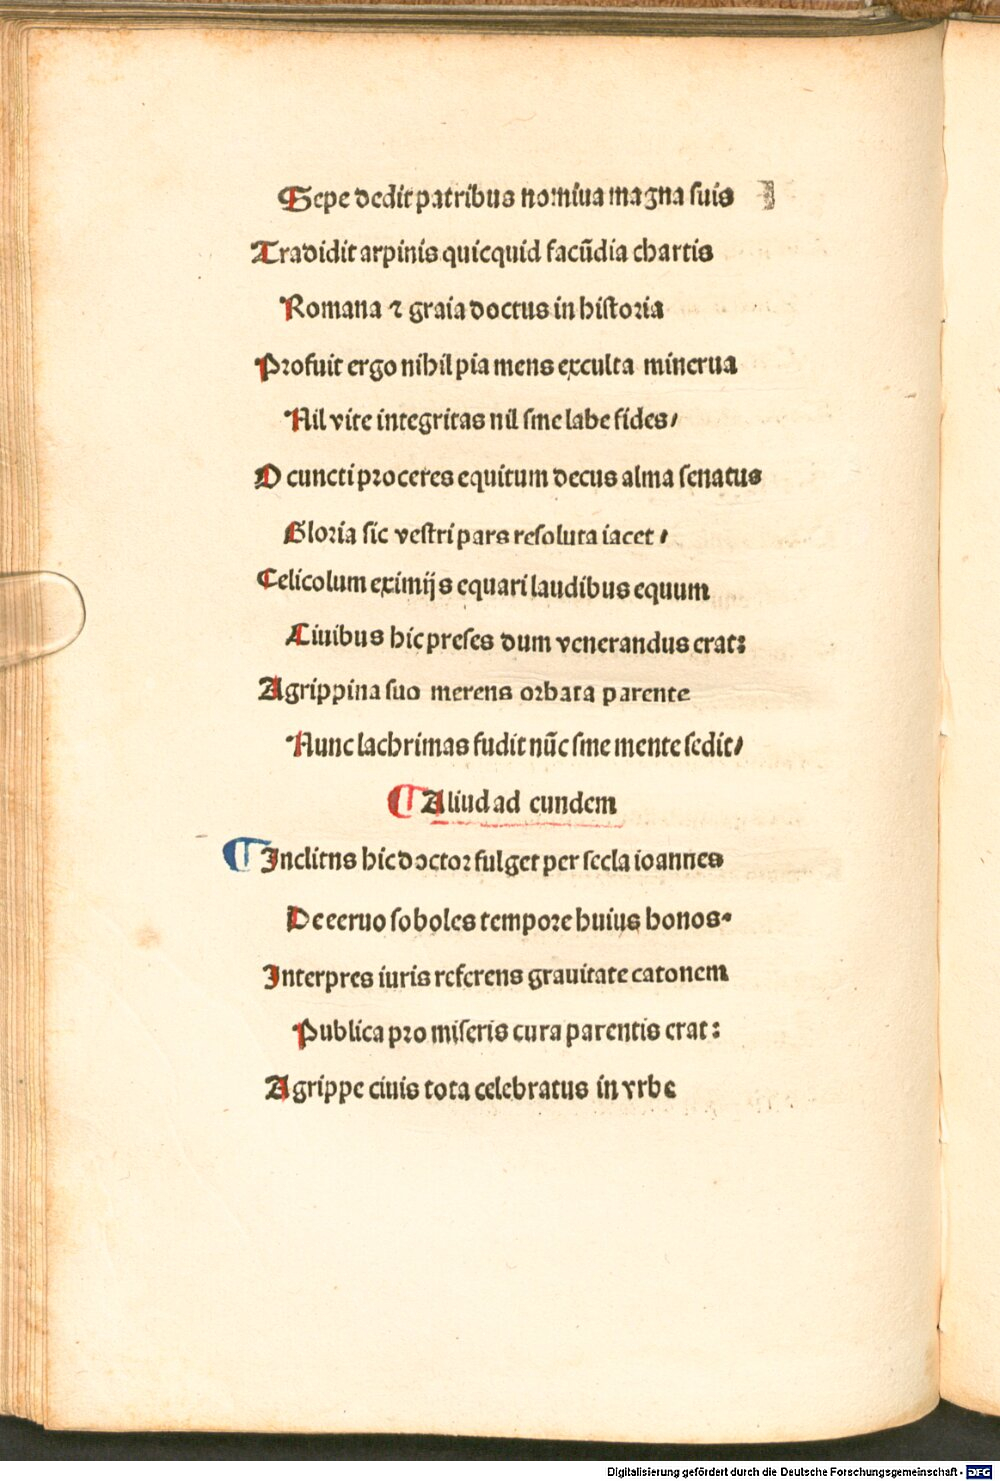 Sepe dedit patribus nomiua magna suis
Tradidit arpinis quicquid facūdia chartis
Romana ⁊ graia doctus in historia
Profuit ergo nihil pia mens exculta minerua
Nil vite integritas nil sine labe fides/
O cuncti proceres equitum decus alma senatus
Gloria sic vestri pars resoluta iacet /
Celicolum eximijs equari laudibus equum
Ciuibus hic preses dum venerandus erat:
Agrippina suo merens orbata parente
Nunc lachrimas fudit nūc sine mente sedit/
Aliud ad eundem
Inclitns hic doctor fulget per secla ioannes
De eeruo soboles tempore huius honos.
Interpres iuris referens grauitate catonem
Publica pro miseris cura parentis erat:
Agrippe ciuis tota celebratus in vrbe
Digitalisierung gefördert durch die Deutsche Forschungsgemeinschaft - DFG